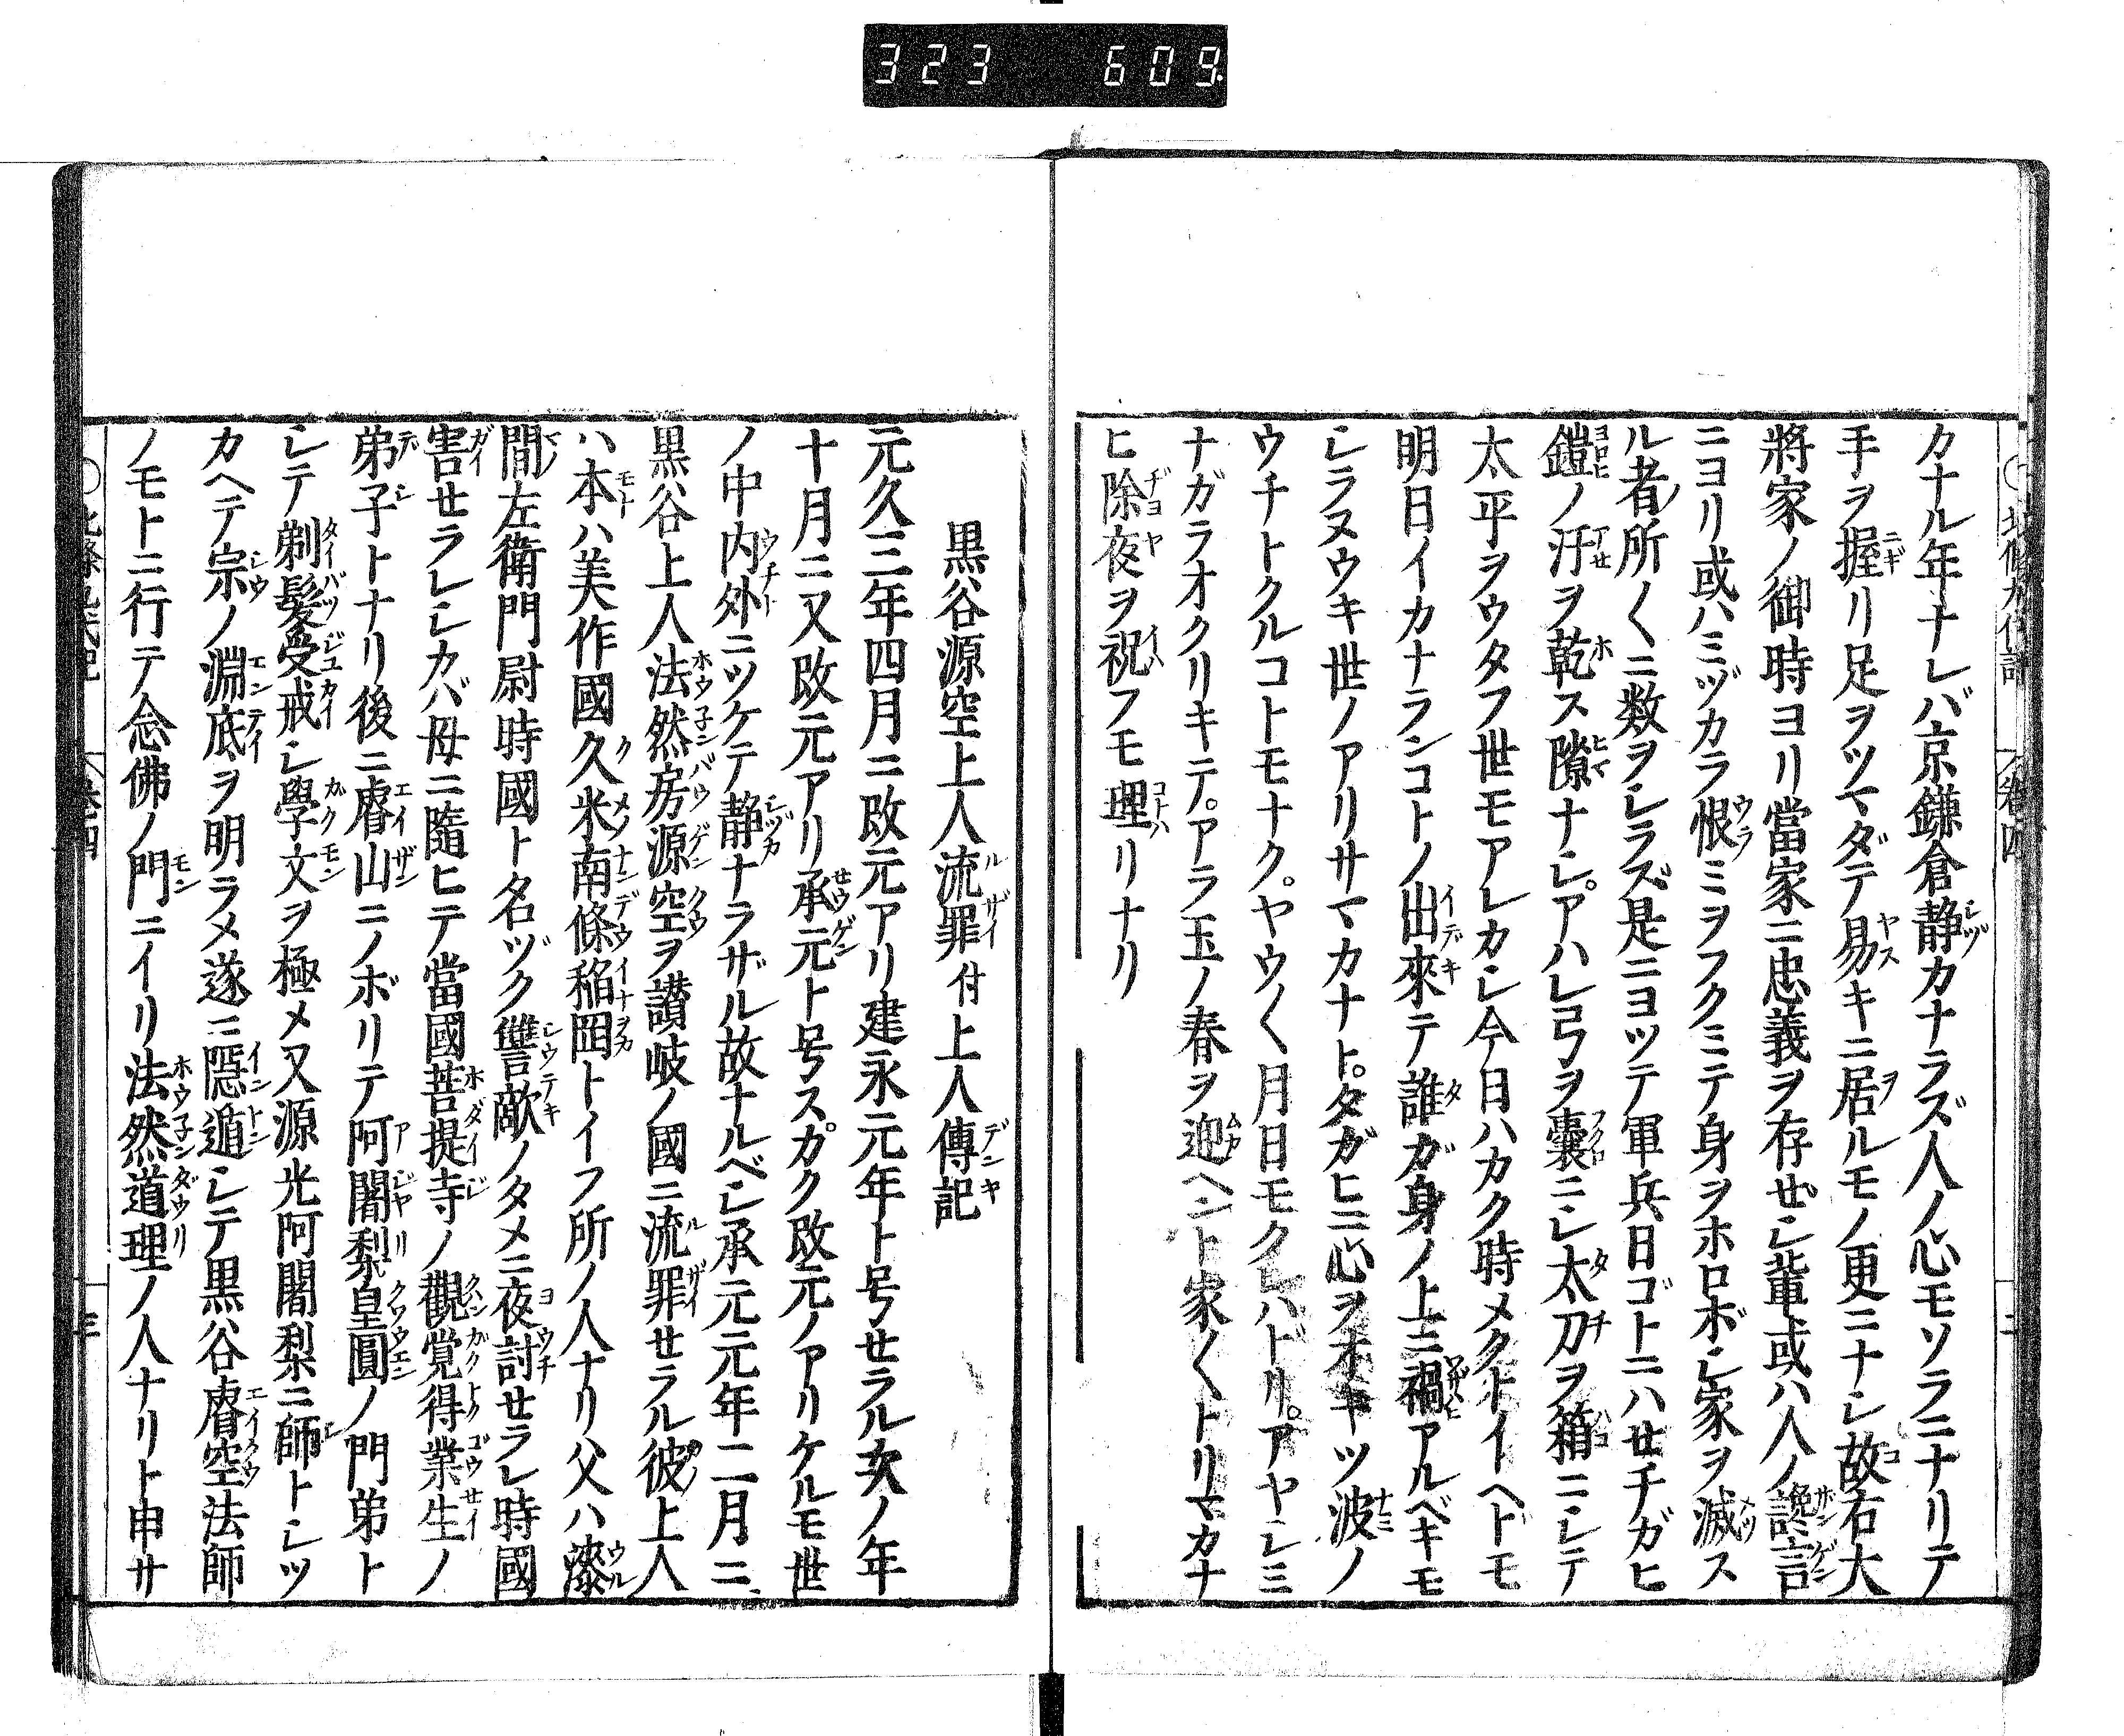 323 609
カナル年ナレバ京鎌倉静カナラズ人ノ心モソラニナリテ
手ヲ握リ足ヲツマダテ易キニ居ルモノ更ニナシ故右大
將家ノ御時ヨリ當家ニ忠義ヲ存ゼシ輩或ハ人ノ讒言
ニヨリ或ハミヅカラ恨ミヲフクミテ身ヲホロボシ家ヲ滅ス
ル者所〱ニ数ヲシラズ是ニヨツテ軍兵日ゴトニハセチガヒ
鎧ノ汗ヲ乾ス隙ナシ。アハレ弓ヲ嚢ニシ太刀ヲ箱ニシテ
太平ヲウタフ世モアレカシ今日ハカク時メクトイヘドモ
明日イカナランコトノ出來テ誰ガ身ノ上ニ禍アルベキモ
シラヌウキ世ノアリサマカナト。タガヒニ心ヲオキツ波ノ
ウチトクルコトモナク。ヤウ〱月日モクレハドリ。アヤシミ
ナガラオクリキテ。アラ玉ノ春ヲ迎ヘント家〱トリマカナ
ヒ除夜ヲ祝フモ理リナリ
黒谷源空上人流罪付上人傳記
元久三年四月ニ改元アリ建永元年ト号セラル次ノ年
十月ニ又改元アリ承元ト号スカク改元ノアリケルモ世
ノ中内外ニツケテ静ナラザル故ナルベシ承元元年二月ニ
黒谷上人法然房源空ヲ讃岐ノ國ニ流罪セラル彼上人
ハ本ハ美作國久米南條稲岡トイフ所ノ人ナリ父ハ漆
間左衛門尉時國ト名ヅク讐敵ノタメニ夜討セラレ時國
害セラレシカバ母ニ隨ヒテ當國菩提寺ノ觀覚得業生ノ
弟子トナリ後ニ睿山ニノボリテ阿闍梨皇圓ノ門弟ト
シテ剃髪受戒シ學文ヲ極メ又源光阿闍梨ニ師トシツ
カヘテ宗ノ淵底ヲ明ラメ遂ニ隠遁シテ黒谷睿空法師
ノモトニ行テ念佛ノ門ニイリ法然道理ノ人ナリト申サ